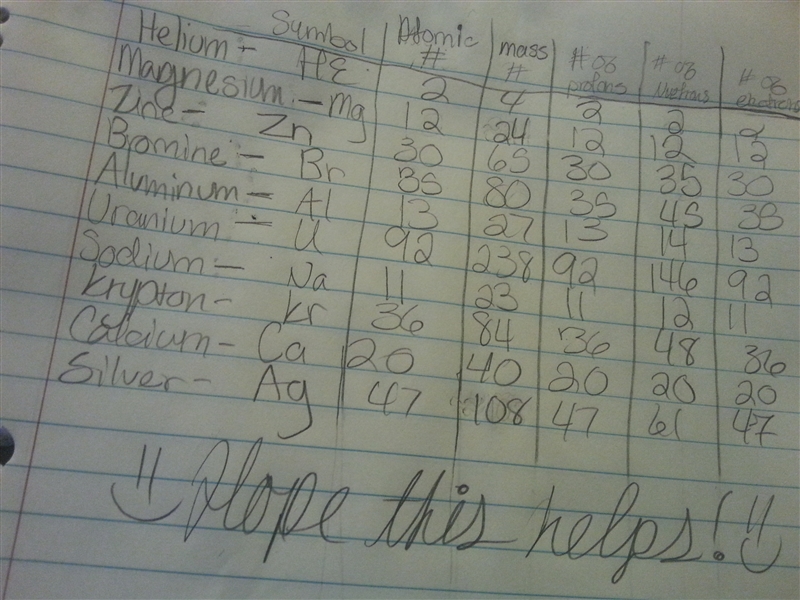 Symbol Atomic # mass # # of protons # of Nuetrons # of electrons
Helium - HE 2 4 2 2 2
Magnesium - Mg 12 24 12 12 12
Zinc - Zn 30 65 30 35 30
Bromine - Br 35 80 35 45 35
Aluminum - Al 13 27 13 14 13
Uranium - U 92 238 92 146 92
Sodium - Na 11 23 11 12 11
Krypton - Kr 36 84 36 48 36
Calcium - Ca 20 40 20 20 20
Silver - Ag 47 108 47 61 47
Hope this helps!